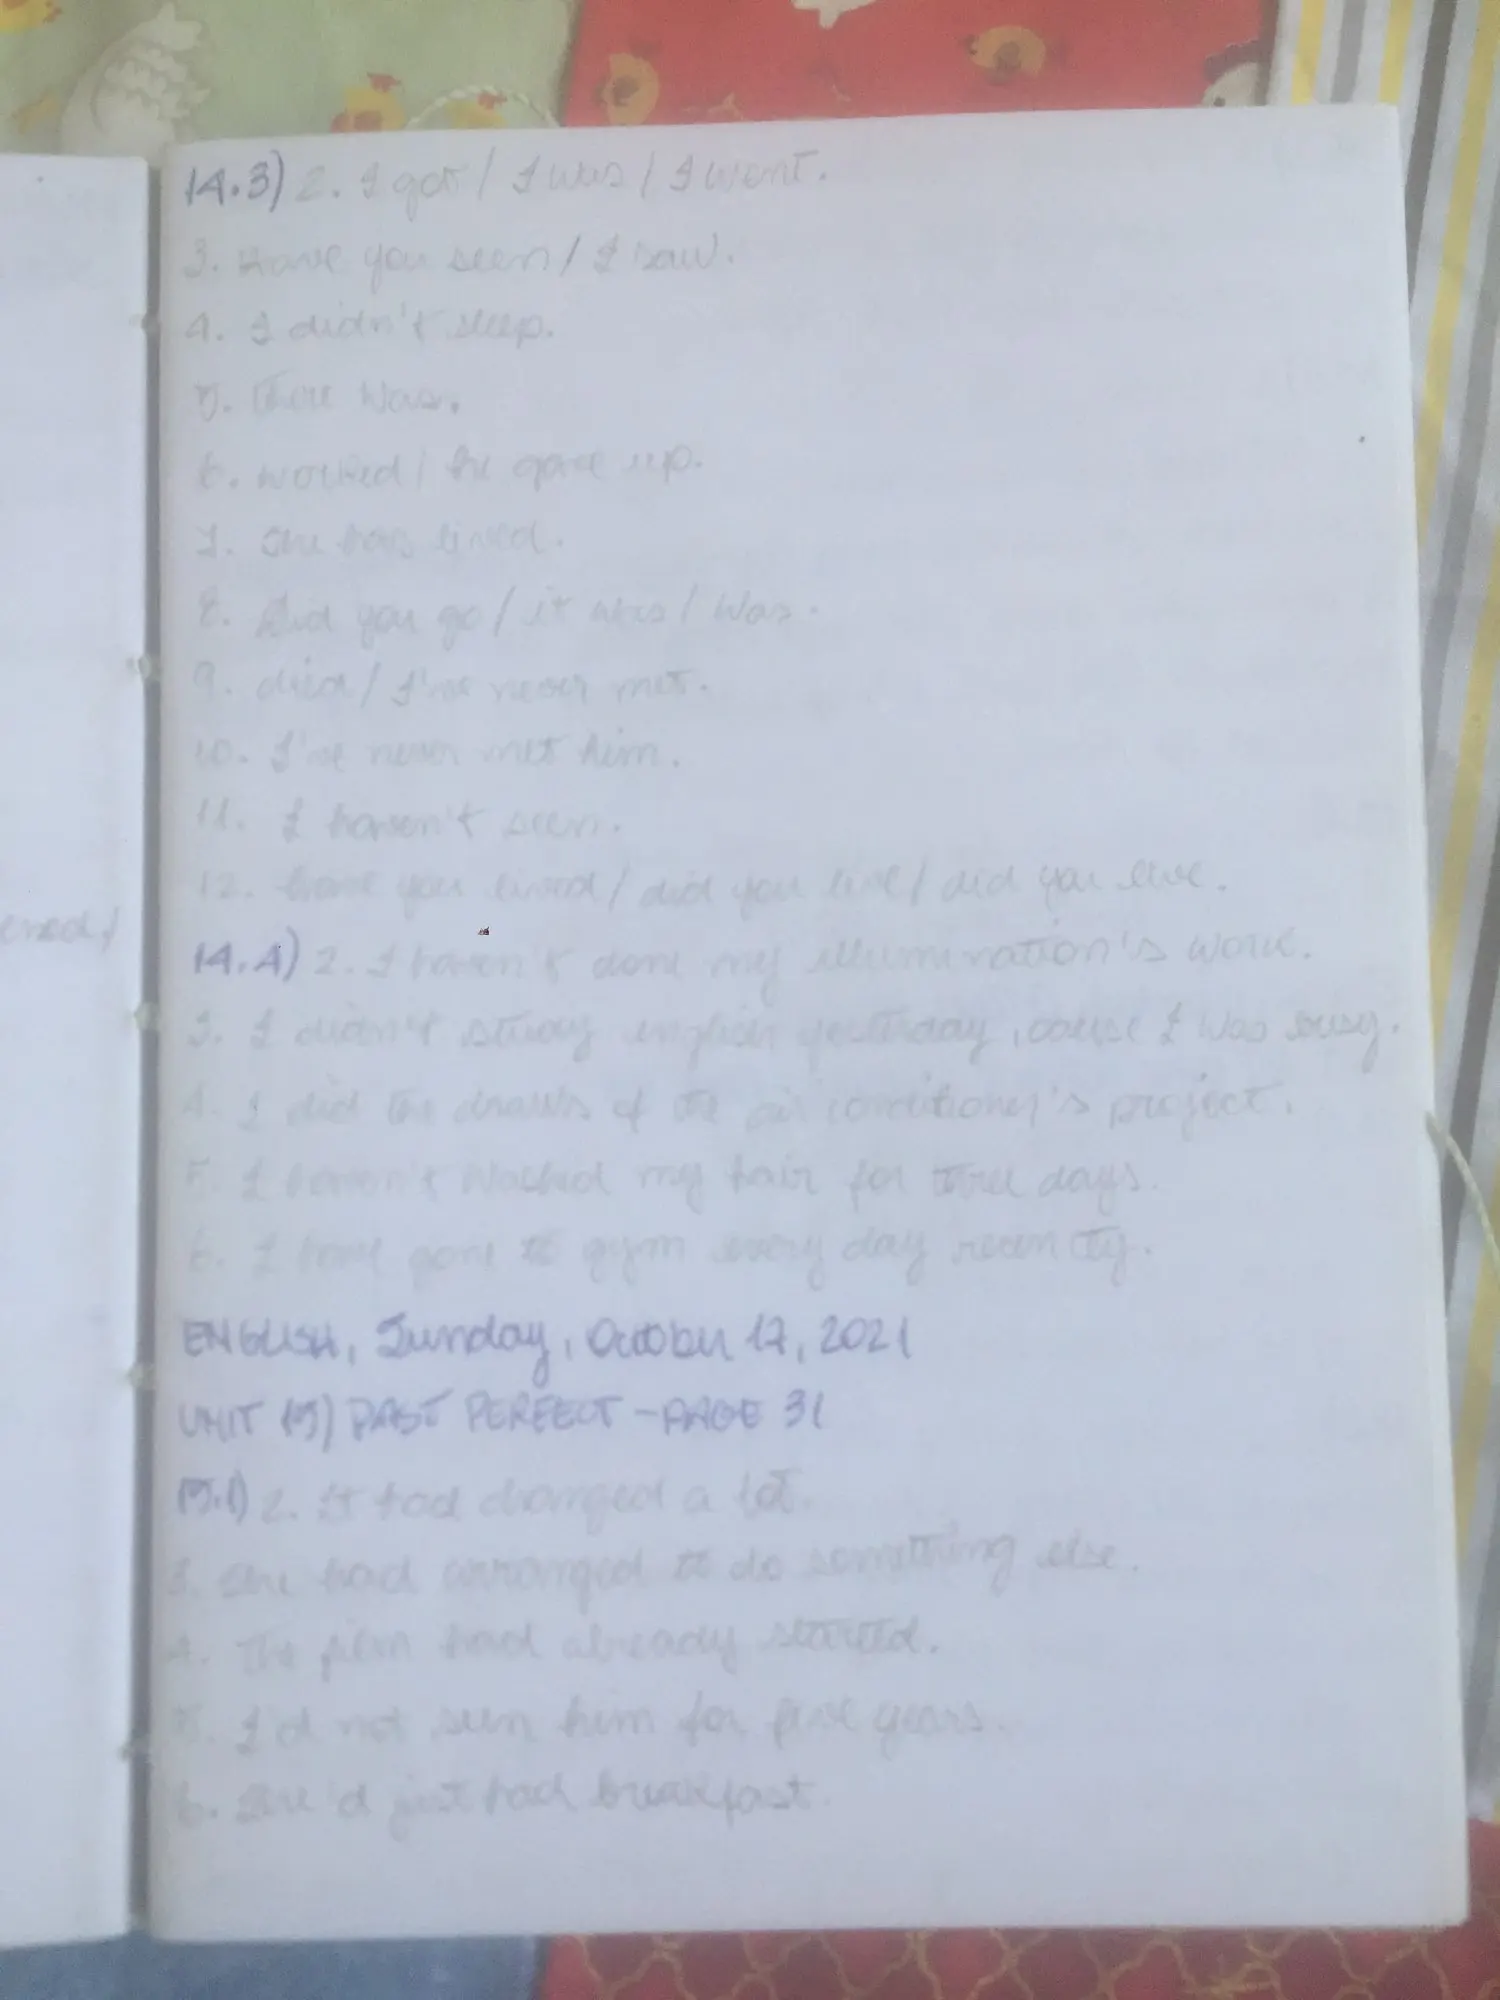 14.3) 2. I got / I was / I went.
3. Have you seen / I saw.
4. I didn't sleep.
5. There was.
6. worked / he gave up.
7. She has lived.
8. Did you go / it was / was.
9. died / I've never met.
10. I've never met him.
11. I haven't seen.
12. have you lived / did you live / did you live.
ened /
14.4) 2. I haven't done my illumination's work.
3. I didn't study english yesterday, cause I was busy.
4. I did the draws of the air conditioner's project.
5. I haven't washed my hair for three days.
6. I have gone to gym every day recently.
ENGLISH, Sunday, October 17, 2021
UNIT 15) PAST PERFECT - PAGE 31
15.1) 2. It had changed a lot.
3. She had arranged to do something else.
4. The film had already started.
5. I'd not seen him for five years.
6. She'd just had breakfast.